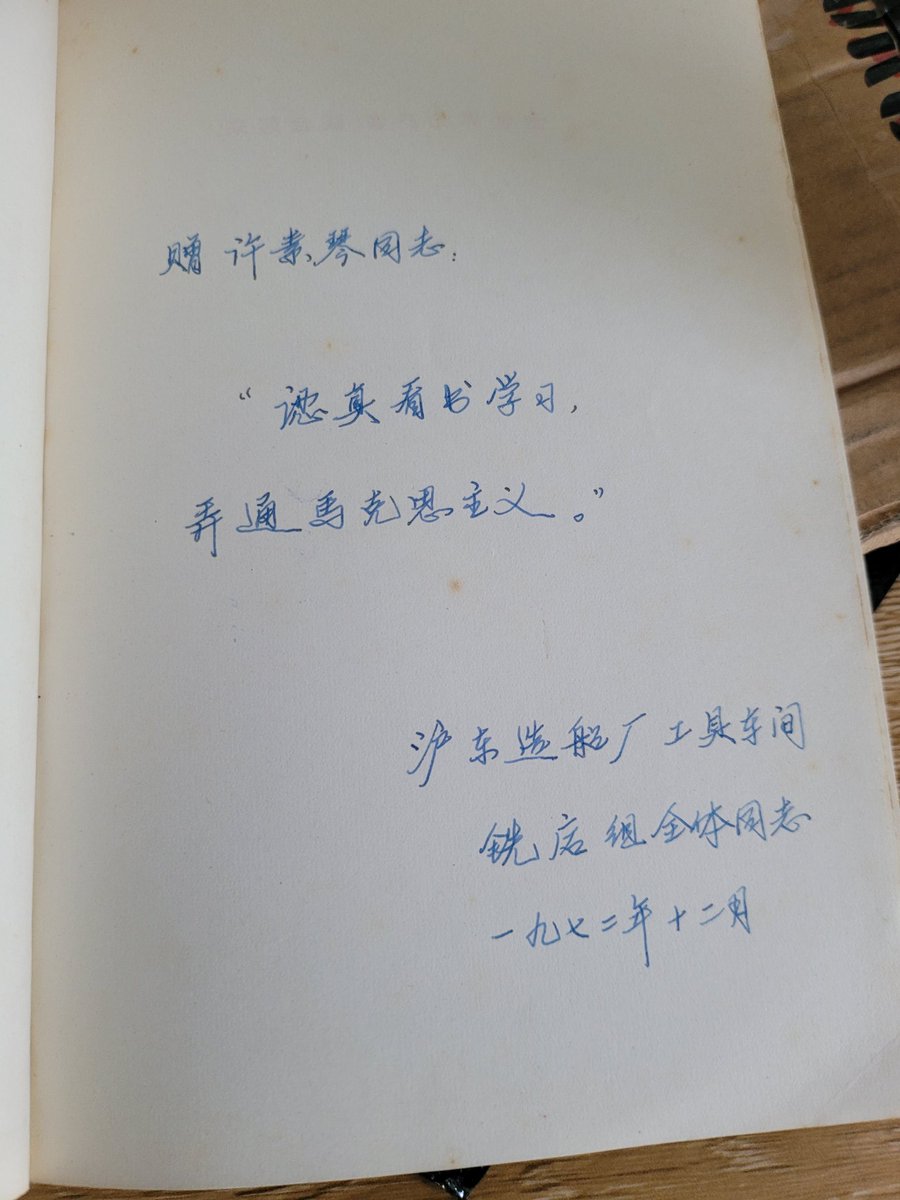 赠 许素琴同志：
“認真看书学习，
弄通馬克思主义。”
沪东造船厂工具车间
铣床组全体同志
一九七二年十二月